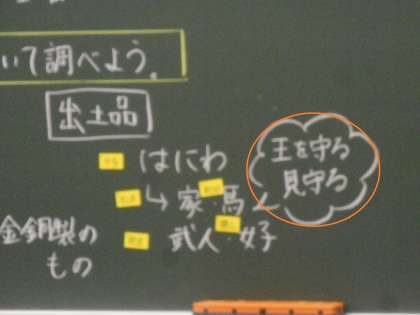 いて調べよう。
出土品
はにわ
↳家・馬
王を守る
見守る
金銅製の
もの
武人・女子